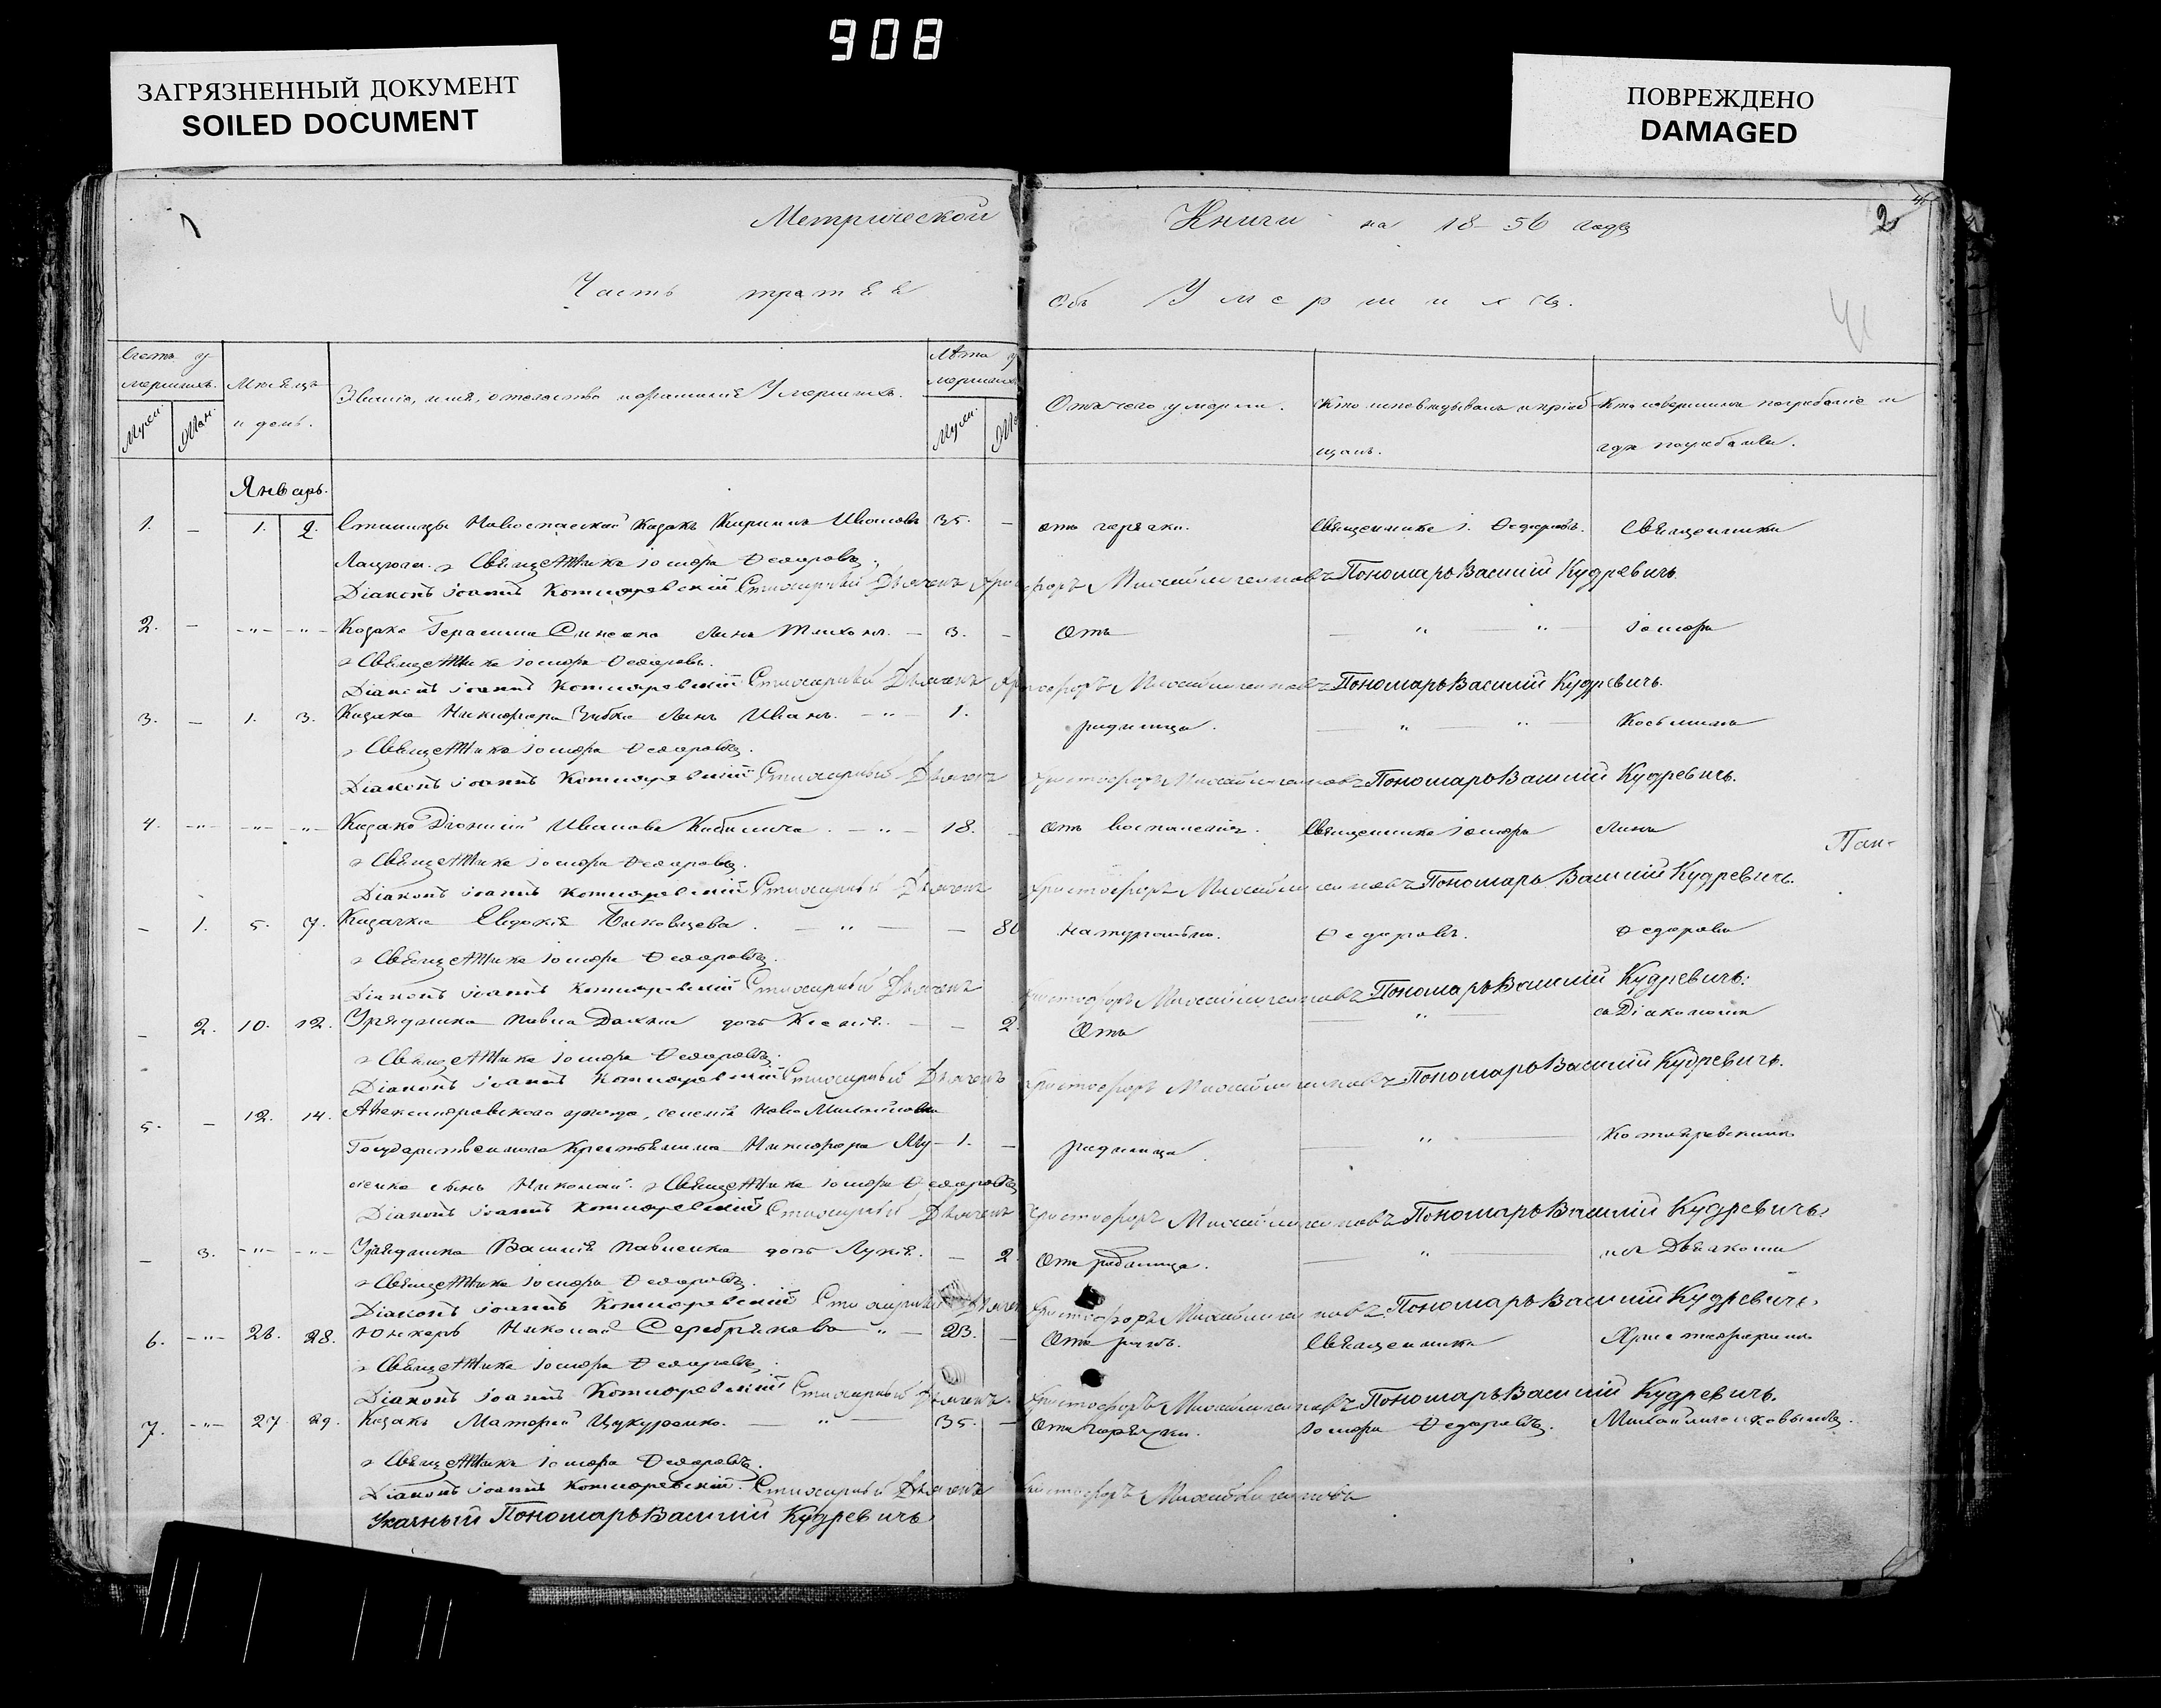 908
ЗАГРЯЗНЕННЫЙ ДОКУМЕНТ
SOILED DOCUMENT
ПОВРЕЖДЕНО
DAMAGED
1
Метрической Книги на 18-56 годъ
2
Часть третья Объ Умершихъ.
Счетъ у
мершихъ.
Муж.
Жен.
Мѣсяцъ
и день.
Званіе, имя, отчество и фамилія Умершихъ.
Лѣта у
мершихъ
Муж.
Отъ чего умерли.
Кто исповѣдывалъ и пріоб
щалъ.
Кто совершилъ погребеніе и
гдѣ погребены.
Январь.
1. - 1. 2. Станицы Новоспаской Казакъ Кириллъ Ивановъ 35. - отъ горячки. Священникъ І. Ѳедоровъ. Священникъ
Священникъ Іосифъ Ѳедоровъ.
Діаконъ Іоаннъ Котляревскій Стихарный Дьячекъ Христофоръ Михайличенковъ Пономарь Василій Кудревичъ.
2. - -"- -"- Казака Герасима сынъ Тихонъ. - 3. - Отъ - " - " - Іосифъ
Священникъ Іосифъ Ѳедоровъ.
Діаконъ Іоаннъ Котляревскій Стихарный Дьячекъ Христофоръ Михайличенковъ Пономарь Василій Кудревичъ.
3. - 1. 3. Казака Никифора Зибка сынъ Иванъ. - " - 1. родимца. - " - " -
Священникъ Іосифъ Ѳедоровъ.
Діаконъ Іоаннъ Котляревскій Стихарный Дьячекъ Христофоръ Михайличенковъ Пономарь Василій Кудревичъ.
4. -"- -"- -"- Казакъ Діонисій Ивановъ - " - 18. - Отъ воспаленія. Священникъ Іосифъ
Священникъ Іосифъ Ѳедоровъ.
Діаконъ Іоаннъ Котляревскій Стихарный Дьячекъ Христофоръ Михайличенковъ Пономарь Василій Кудревичъ.
- 1. 5. 7. Казачка Евдокія - " - - 80 Натурально. Ѳедоровъ. Ѳедоровъ
Священникъ Іосифъ Ѳедоровъ.
Діаконъ Іоаннъ Котляревскій Стихарный Дьячекъ Христофоръ Михайличенковъ Пономарь Василій Кудревичъ.
- 2. 10. 12. Урядника Павла дочь Ксенія. - - 2. Отъ - " - съ Діакономъ
Священникъ Іосифъ Ѳедоровъ.
Діаконъ Іоаннъ Котляревскій Стихарный Дьячекъ Христофоръ Михайличенковъ Пономарь Василій Кудревичъ.
5. - 12. 14. Александровскаго уѣзда, селенія Ново Михайловки
Государственнаго Крестьянина Никифора Лу - 1. - родимца - " - Котляревскимъ
ценка сынъ Николай. Священникъ Іосифъ Ѳедоровъ
Діаконъ Іоаннъ Котляревскій Стихарный Дьячекъ Христофоръ Михайличенковъ Пономарь Василій Кудревичъ.
- 3. -"- -"- Урядника Василія Павленка дочь Лукія. - 2. Отъ родимца. - " -
Священникъ Іосифъ Ѳедоровъ.
Діаконъ Іоаннъ Котляревскій Стихарный Дьячекъ Христофоръ Михайличенковъ Пономарь Василій Кудревичъ.
6. -"- 26. 28. Юнкеръ Николай Серебряковъ " - 23. - Отъ Священникъ Христофоромъ
Священникъ Іосифъ Ѳедоровъ.
Діаконъ Іоаннъ Котляревскій Стихарный Дьячекъ Христофоръ Михайличенковъ Пономарь Василій Кудревичъ.
7. -"- 27. 29. Казакъ Матфей Цукуренко. - " - 35. - Отъ горячки. Іосифъ Ѳедоровъ. Михайличенковымъ.
Священникъ Іосифъ Ѳедоровъ.
Діаконъ Іоаннъ Котляревскій. Стихарный Дьячекъ Христофоръ Михайличенковъ
Указный Пономарь Василій Кудревичъ